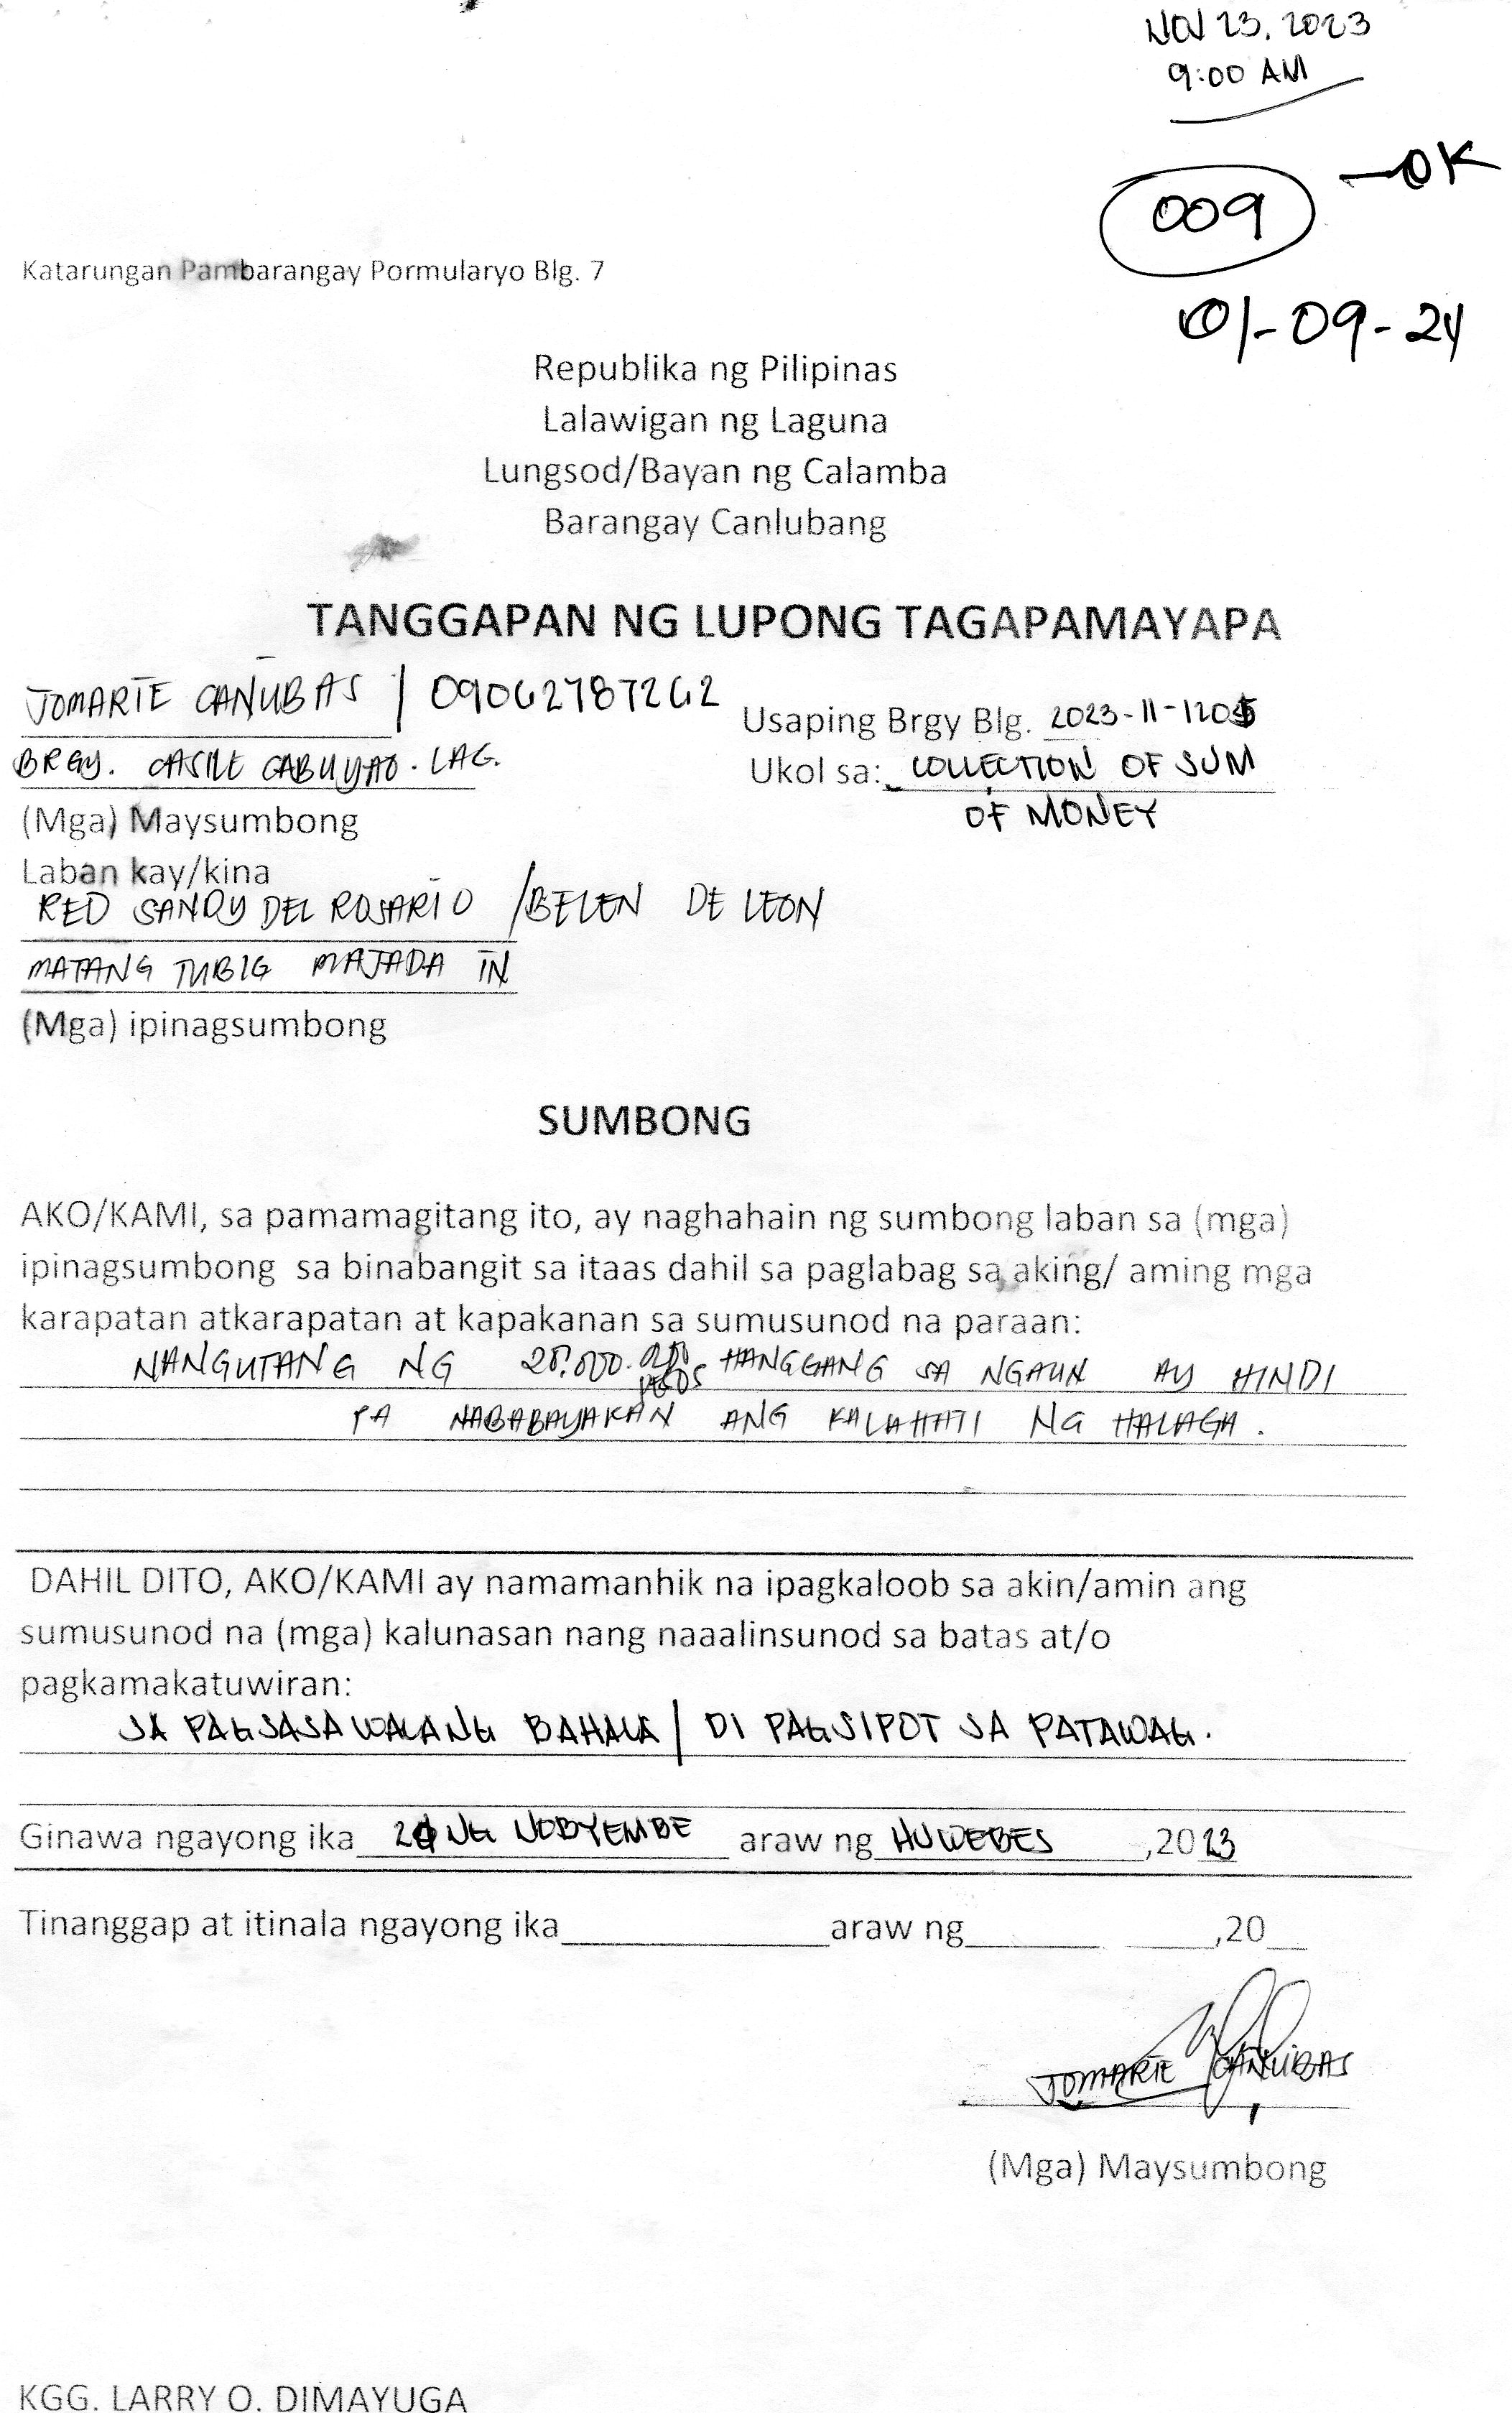 NOV 23, 2023
9:00 AM
009 —OK
01-09-24
Katarungan Pambarangay Pormularyo Blg. 7
Republika ng Pilipinas
Lalawigan ng Laguna
Lungsod/Bayan ng Calamba
Barangay Canlubang
TANGGAPAN NG LUPONG TAGAPAMAYAPA
JOMARIE CAÑUBAS / 09062787262
Usaping Brgy Blg. 2023-11-1205
BRGY. CASILE CABUYAO. LAG.
Ukol sa: COLLECTION OF SUM
OF MONEY
(Mga) Maysumbong
Laban kay/kina
RED SANDY DEL ROSARIO /BELEN DE LEON
MATANG TUBIG MAJADA IN
(Mga) ipinagsumbong
SUMBONG
AKO/KAMI, sa pamamagitang ito, ay naghahain ng sumbong laban sa (mga)
ipinagsumbong sa binabangit sa itaas dahil sa paglabag sa aking/ aming mga
karapatan atkarapatan at kapakanan sa sumusunod na paraan:
NANGUTANG NG PESOS HANGGANG SA NGAUN AY HINDI
PA NABABAYARAN ANG KALAHATI NG HALAGA.
DAHIL DITO, AKO/KAMI ay namamanhik na ipagkaloob sa akin/amin ang
sumusunod na (mga) kalunasan nang naaalinsunod sa batas at/o
pagkamakatuwiran:
SA PAGSASAWALANG BAHALA / DI PAGSIPOT SA PATAWAG.
Ginawa ngayong ika NG NOBYEMBE araw ng HUWEBES ,2023
Tinanggap at itinala ngayong ika______________araw ng_______ _____,20__
JOMARIE CAÑUBAS
(Mga) Maysumbong
KGG. LARRY O. DIMAYUGA